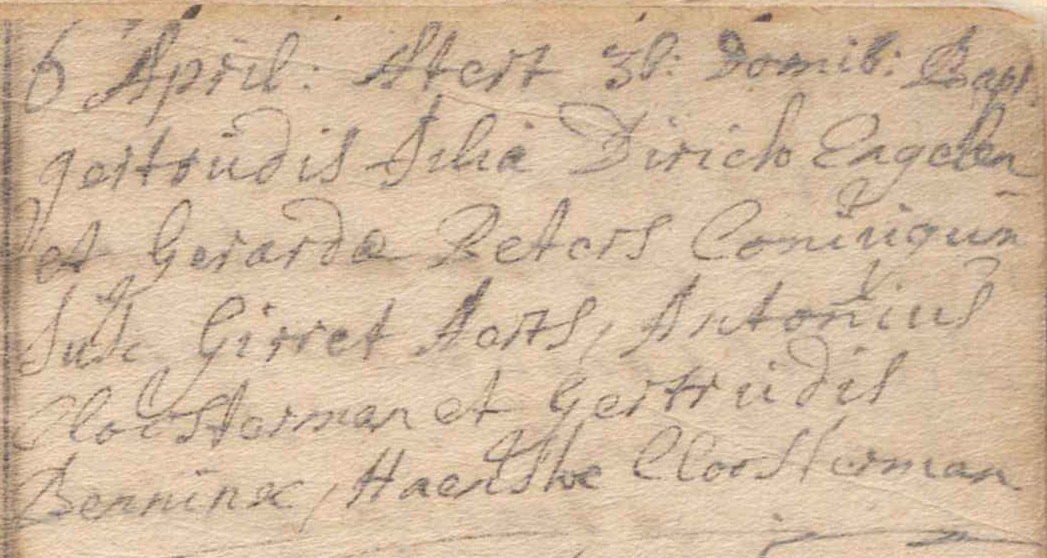 6 April: Atert 3b: Domib: Bapt.
gertrudis filia Dirick Engelen
et Gerardæ Peters Coniugum
Susc Girret Aerts, Antonius
Cloosterman et Gertrudis
Benninx, Haenske Cloosterman